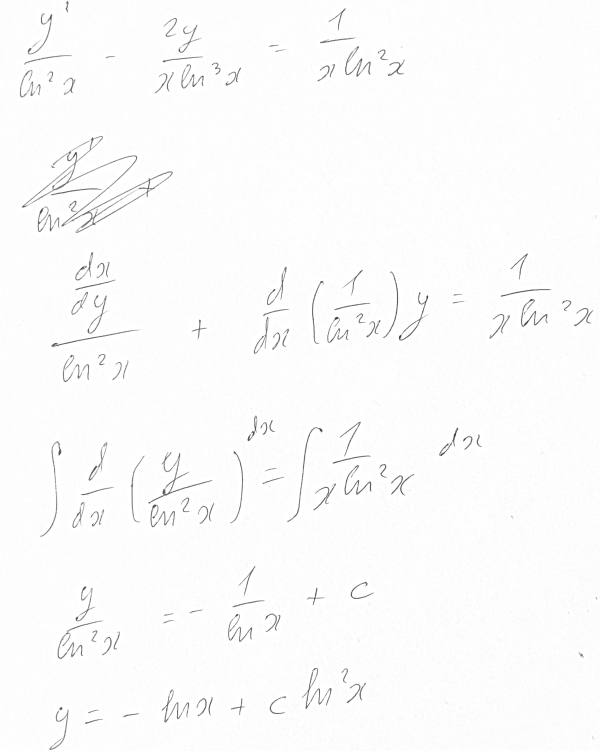 y'/ln²x - 2y/(x ln³x) = 1/(x ln²x)
(dx/dy)/(ln²x) + d/dx (1/ln²x) y = 1/(x ln²x)
∫ d/dx (y/ln²x) dx = ∫ 1/(x ln²x) dx
y/ln²x = - 1/ln x + c
y = - ln x + c ln²x